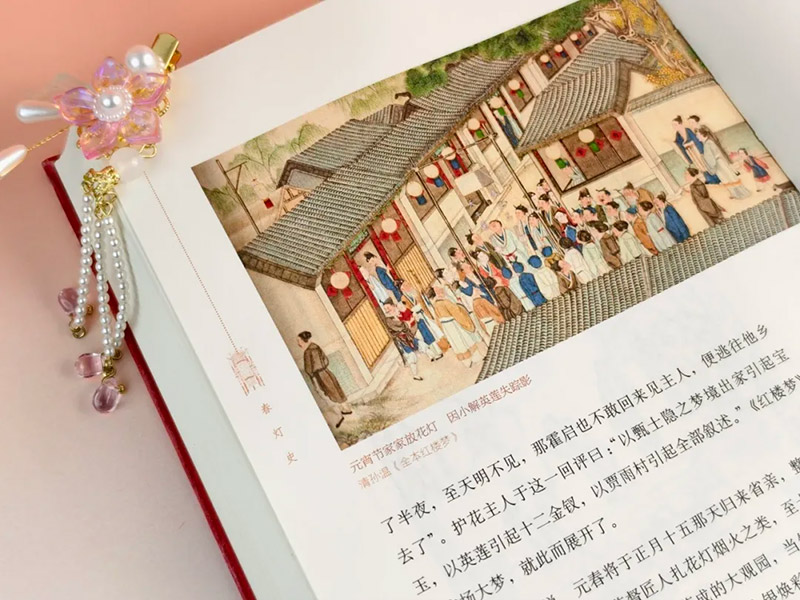 春灯史
元宵节家家放花灯 因小解英莲失踪影
清孙温《全本红楼梦》
了半夜，至天明不见，那霍启也不敢回来见主人，便逃往他乡
去了”。护花主人于这一回评曰：“以甄士隐之梦境出家引起宝
玉，以英莲引起十二金钗，以贾雨村引起全部叙述。”《红楼梦》
场大梦，就此而展开了。
元春将于正月十五那天归来省亲，整
督匠人扎花灯烟火之类，至
成的大观园，当
银焕彩